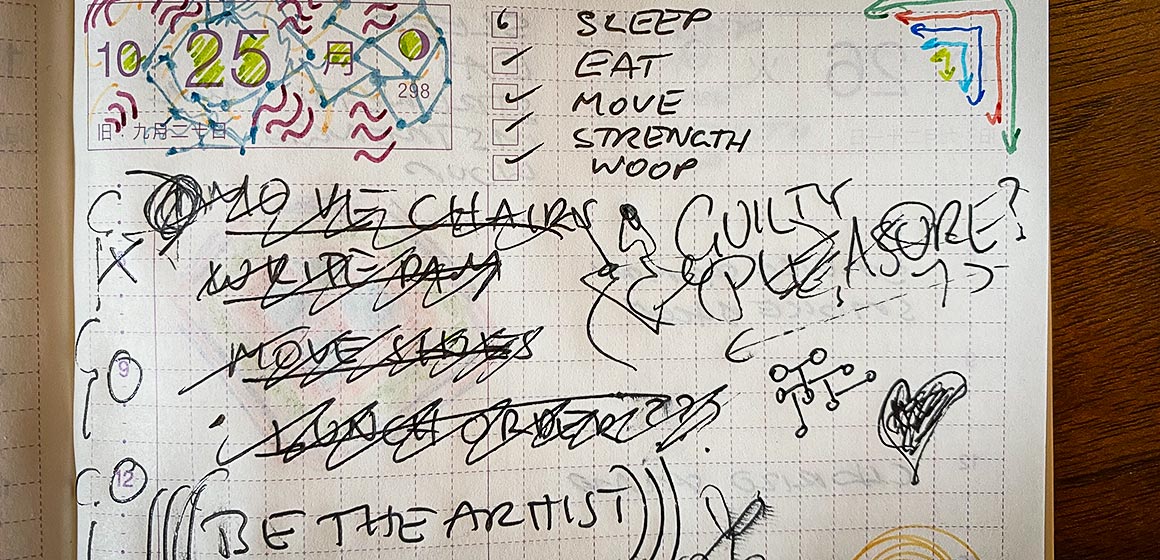 10 25 月
298
旧・九月二十日
SLEEP
EAT
MOVE
STRENGTH
WOOP
MOVE CHAIRS
WRITE DAM
MOVE SHOES
LUNCH ORDER???
GUILTY
PLEASORE?
9
12
BE THE ARTIST